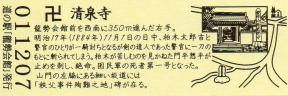 卍 清泉寺
能勢会館前を西南に350m進んだ右手。
明治17年(1884年)11月7日の日中、柏木太郎吉と
警官のひとりが一騎討ちとなるが剣の達人であった警官に一刀の
もとに斬られてしまう。柏木が苦しむのを見かねた門平惣平が
止めを刺し、絶命。困民軍の死者第一号となった。
山門の左脇にある細い坂道には
「秩父事件殉難之地」碑が在る。
道の駅「龍勢会館」発行
0111207